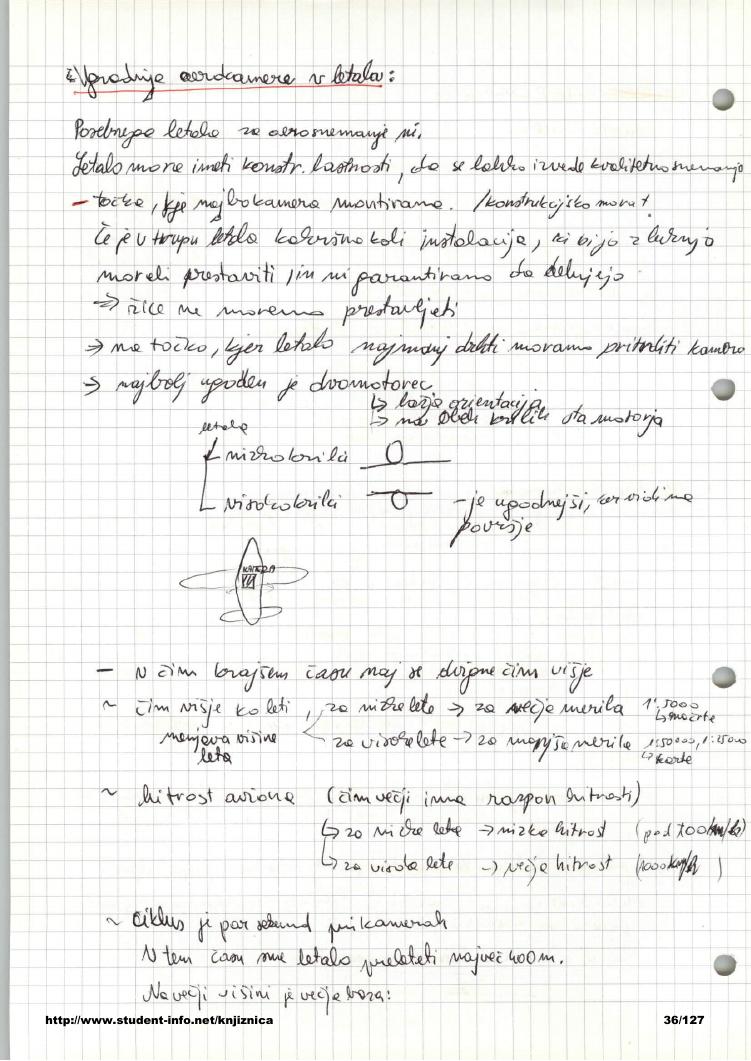 Vgradnja aerokamere v letala:
Posebnega letala za aerosnemanje ni.
Letalo mora imeti konstr. lastnosti, da se lahko izvede kvalitetno snemanje
– točka, kje naj bo kamera montirana. /konstrukcijsko mora
Če je v trupu letala kakršnakoli instalacija, bi bijo z luknjo
morali prestaviti, in ni garantirano da delujejo
⇒ žice ne moremo prestavljati
→ na točko, kjer letalo najmanj drhti moramo pritrditi kamero
→ najbolj ugoden je dvomotorec
↳ lažja orientacija
↳ na obeh krilih sta motorja
letala
nizkokrilci
visokokrilci – je ugodnejši, ker vidimo
površje
KAMERA
– V čim krajšem času naj se dvigne čim višje
~ čim višje ko leti, za nizke lete → za večja merila 1:5000
↳ načrte
menjava višine
leta
za visoke lete → za manjša merila 1:50000, 1:25000
↳ karte
~ hitrost aviona (čim večji ima razpon hitrosti)
↳ za nizke lete → nizka hitrost (pod 700km/h)
↳ za visoke lete → večja hitrost (1000km/h)
~ ciklus je par sekund pri kamerah
V tem času sme letalo preleteti največ 400m.
Na večji višini je večja baza:
http://www.student-info.net/knjiznica 36/127